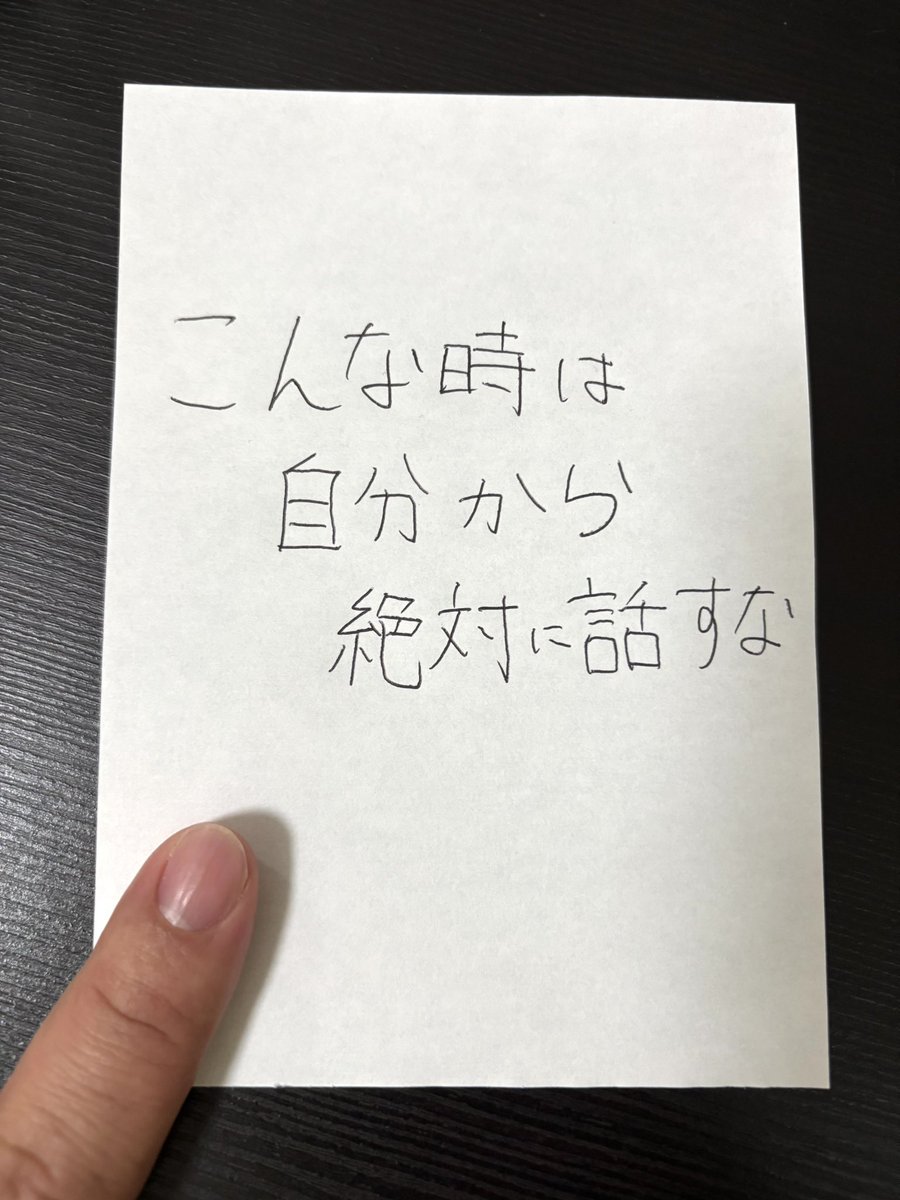 こんな時は
自分から
絶対に話すな